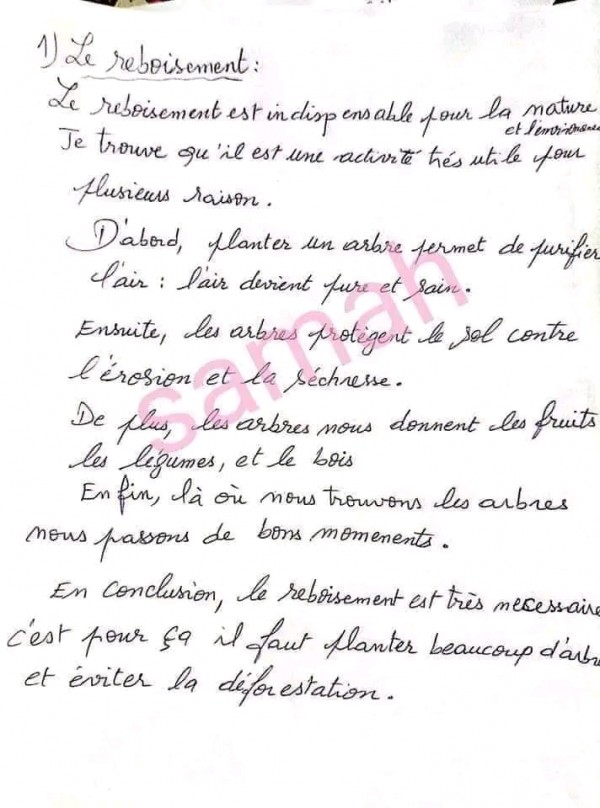 1) Le reboisement :
Le reboisement est indispensable pour la nature
et l'environneme
Je trouve qu'il est une activité trés utile pour
plusieurs raison.
D'abord, planter un arbre permet de purifier
l'air : l'air devient pure et sain.
Ensuite, les arbres protègent le sol contre
l'érosion et la séchresse.
De plus, les arbres nous donnent les fruits
les légumes, et le bois
Enfin, là où nous trouvons les arbres
nous passons de bons momenents.
En conclusion, le reboisement est très necessaire
c'est pour ça il faut planter beaucoup d'arbre
et éviter la déforestation.
sarnah